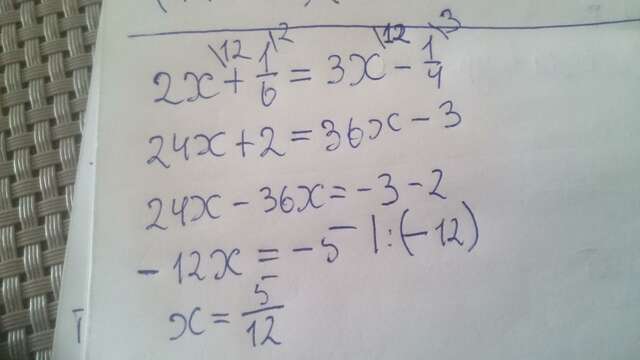 2x\12 + 1/6\2 = 3x\12 - 1/4\3
24x + 2 = 36x - 3
24x - 36x = -3 - 2
-12x = -5 | : (-12)
x = 5/12